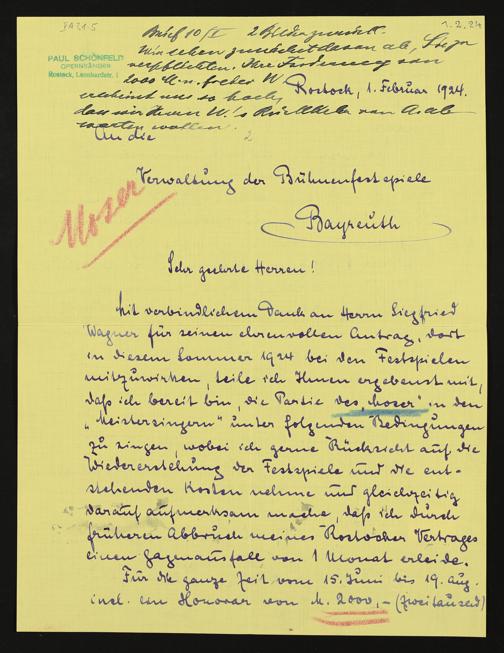 1.2.24
Brief 10/II 2 Bilder zurück.
Wir sehen zunächst davon ab, Sie zu
verpflichten. Ihre Forderung von
2000 M. u. freier
erscheint uns so hoch,
dass wir Herrn W.'s Rückkehr von
warten wollen.
PAUL SCHÖNFELD
OPERNSÄNGER
Rostock, Leonhardstr. 1
Rostock, 1. Februar 1924.
An die
2
Verwaltung der Bühnenfestspiele
Bayreuth
Moser
Sehr geehrte Herren!
Mit verbindlichem Dank an Herrn Siegfried
Wagner für seinen ehrenvollen Antrag, dort
in diesem Sommer 1924 bei den Festspielen
mitzuwirken, teile ich Ihnen ergebenst mit,
daß ich bereit bin, die Partie des „Moser" in den
„Meistersingern" unter folgenden Bedingungen
zu singen, wobei ich gerne Rücksicht auf die
Wiedererstehung der Festspiele und die ent-
stehenden Kosten nehme und gleichzeitig
darauf aufmerksam mache, daß ich durch
früheren Abbruch meines Rostocker Vertrages
einen Gagenausfall von 1 Monat erleide.
Für die ganze Zeit vom 15. Juni bis 19. Aug.
incl. ein Honorar von M. 2000,- (Zweitausend)